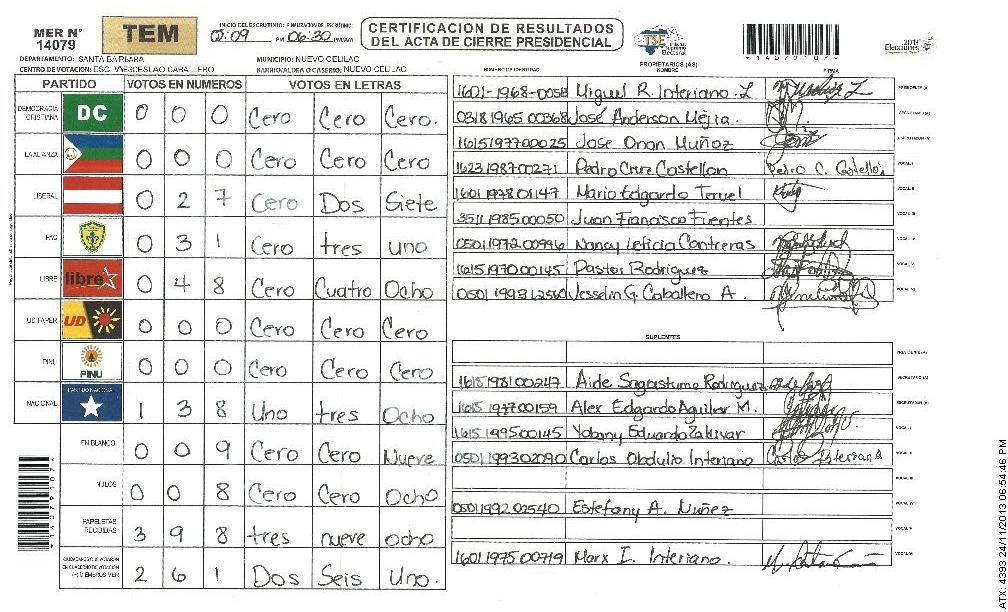 MER N° 14079
TEM
INICIO DEL ESCRUTINIO: FINALIZACION DEL ESCRUTINIO:
PM 06:30 PM/AM
CERTIFICACION DE RESULTADOS
DEL ACTA DE CIERRE PRESIDENCIAL
TSE Tribunal Supremo Electoral
2013
Elecciones
DEPARTAMENTO: SANTA BARBARA MUNICIPIO: NUEVO CELILAC
CENTRO DE VOTACION: ESC. WESCESLAO CABALLERO BARRIO/ALDEA O CASERIO: NUEVO CELILAC
PARTIDO VOTOS EN NUMEROS VOTOS EN LETRAS
DEMOCRACIA CRISTIANA DC 0 0 0 Cero Cero Cero.
LA ALIANZA 0 0 0 Cero Cero Cero
LIBERAL 0 2 7 Cero Dos Siete
PAC 0 3 1 Cero tres uno
LIBRE libre 0 4 8 Cero Cuatro Ocho
UD FAPER UD 0 0 0 Cero Cero Cero
PINU PINU 0 0 0 Cero Cero Cero
NACIONAL PARTIDO NACIONAL 1 3 8 Uno tres Ocho
EN BLANCO 0 0 9 Cero Cero Nueve
NULOS 0 0 8 Cero Cero Ocho
PAPELETAS RECIBIDAS 3 9 8 tres nueve ocho
CIUDADANOS QUE VOTARON EN CUADERNO DE VOTACION (+) MIEMBROS MER 2 6 1 Dos Seis Uno.
NUMERO DE IDENTIDAD PROPIETARIOS (AS) NOMBRE FIRMA
1601-1968-0058 Miguel R. Interiano. L PRESIDENTE (A)
0318 1965 00368 José Anderson Mejia. SECRETARIO (A)
1615197700025 Jose Onan Muñoz ESCRUTADOR (A)
1623 1987 00271 Pedro Cruz Castellon Pedro C. VOCAL I
1601 1978 01147 Mario Edgardo Teruel VOCAL II
3511 1985 00050 Juan Francisco Fuentes VOCAL III
0501 1972 00996 Nancy Leticia Contreras VOCAL IV
1615 1970 00145 Pastor Rodriguez VOCAL V
0501 1993 12560 Jesselin G. Caballero A. VOCAL VI
SUPLENTES
PRESIDENTE (A)
1615 1981 00247 Aide Sagastume Rodriguez SECRETARIO (A)
1615 1977 00159 Alex Edgardo Aguilar M. ESCRUTADOR (A)
1615 1995 00145 Yobany Eduardo Zaldivar VOCAL I
0501 1993 02090 Carlos Obdulio Interiano Carlos Interiano VOCAL II
VOCAL III
0501 1992 02540 Estefany A. Nuñez VOCAL IV
VOCAL V
1601 1975 00719 Marx I. Interiano. VOCAL VI
ATX: 4393 24/11/2013 06:54:46 PM